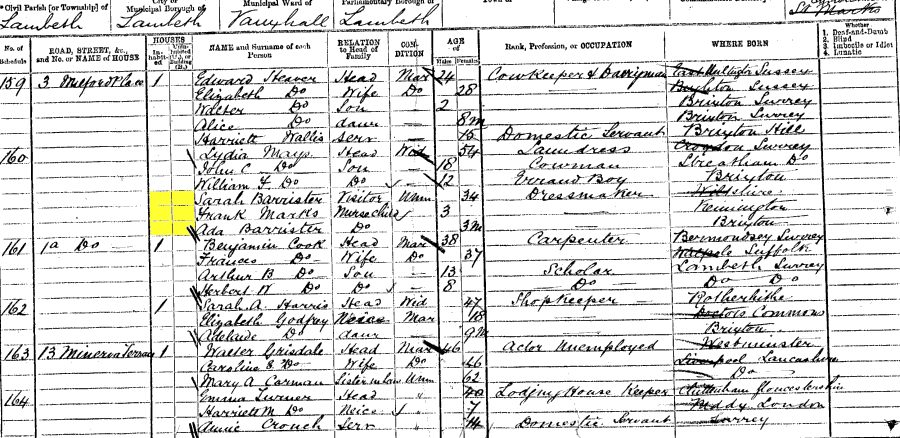 Civil Parish [or Township] of Municipal Borough of Municipal Ward of Parliamentary Borough of
Lambeth Lambeth Vauxhall Lambeth St Marks
No. of Schedule ROAD, STREET, &c., and No. or NAME of HOUSE HOUSES NAME and Surname of each Person RELATION to Head of Family CONDITION AGE of Rank, Profession, or OCCUPATION WHERE BORN
Inhabited Males Females 1 Deaf-and-Dumb 2 Blind 3 Imbecile or Idiot 4 Lunatic
159 3 Place 1 Edward Head Mar 24 Cowkeeper & Dairyman Sussex
Elizabeth Do Wife Do 28 Brighton Sussex
Walter Do Son — 2 Brixton Surrey
Alice Do daur — 8m Brixton Surrey
Harriett Wallis Serv — 15 Domestic Servant Brixton Hill
160 Lydia Mays Head Wid 54 Laundress Croydon Surrey
John C Do Son — 18 Cowman Streatham Do
William F Do Do 12 Errand Boy Brixton
Sarah Barrister Visitor Unm 34 Dressmaker Wiltshire
Frank Marks Nursechild 3 — Kennington
Ada Barrister Do 3m Brixton
161 1a Do 1 Benjamin Cook Head Mar 38 Carpenter Bermondsey Surrey
Frances Do Wife Do 37 Suffolk
Arthur B Do Son — 13 Scholar Lambeth Surrey
Herbert W Do Do — 8 Do Do Do
162 1 Sarah A Harris Head Wid 47 Shopkeeper Rotherhithe
Elizabeth Godfrey Neice Mar 18 Doctors Commons
Adelaide Do daur — 9m Brixton
163 13 Minerva Terrace 1 Walter Grisdale Head Mar 46 Actor Unemployed Westminster
Caroline S Do Wife Do 46 Liverpool Lancashire
Mary A Corman Sister in law Unm 62 Do
164 Emma Turner Head " 40 Lodging House Keeper Cheltenham Gloucestershire
Harriett M Do Neice " 7 London
Annie Crouch Serv " 14 Domestic Servant Surrey